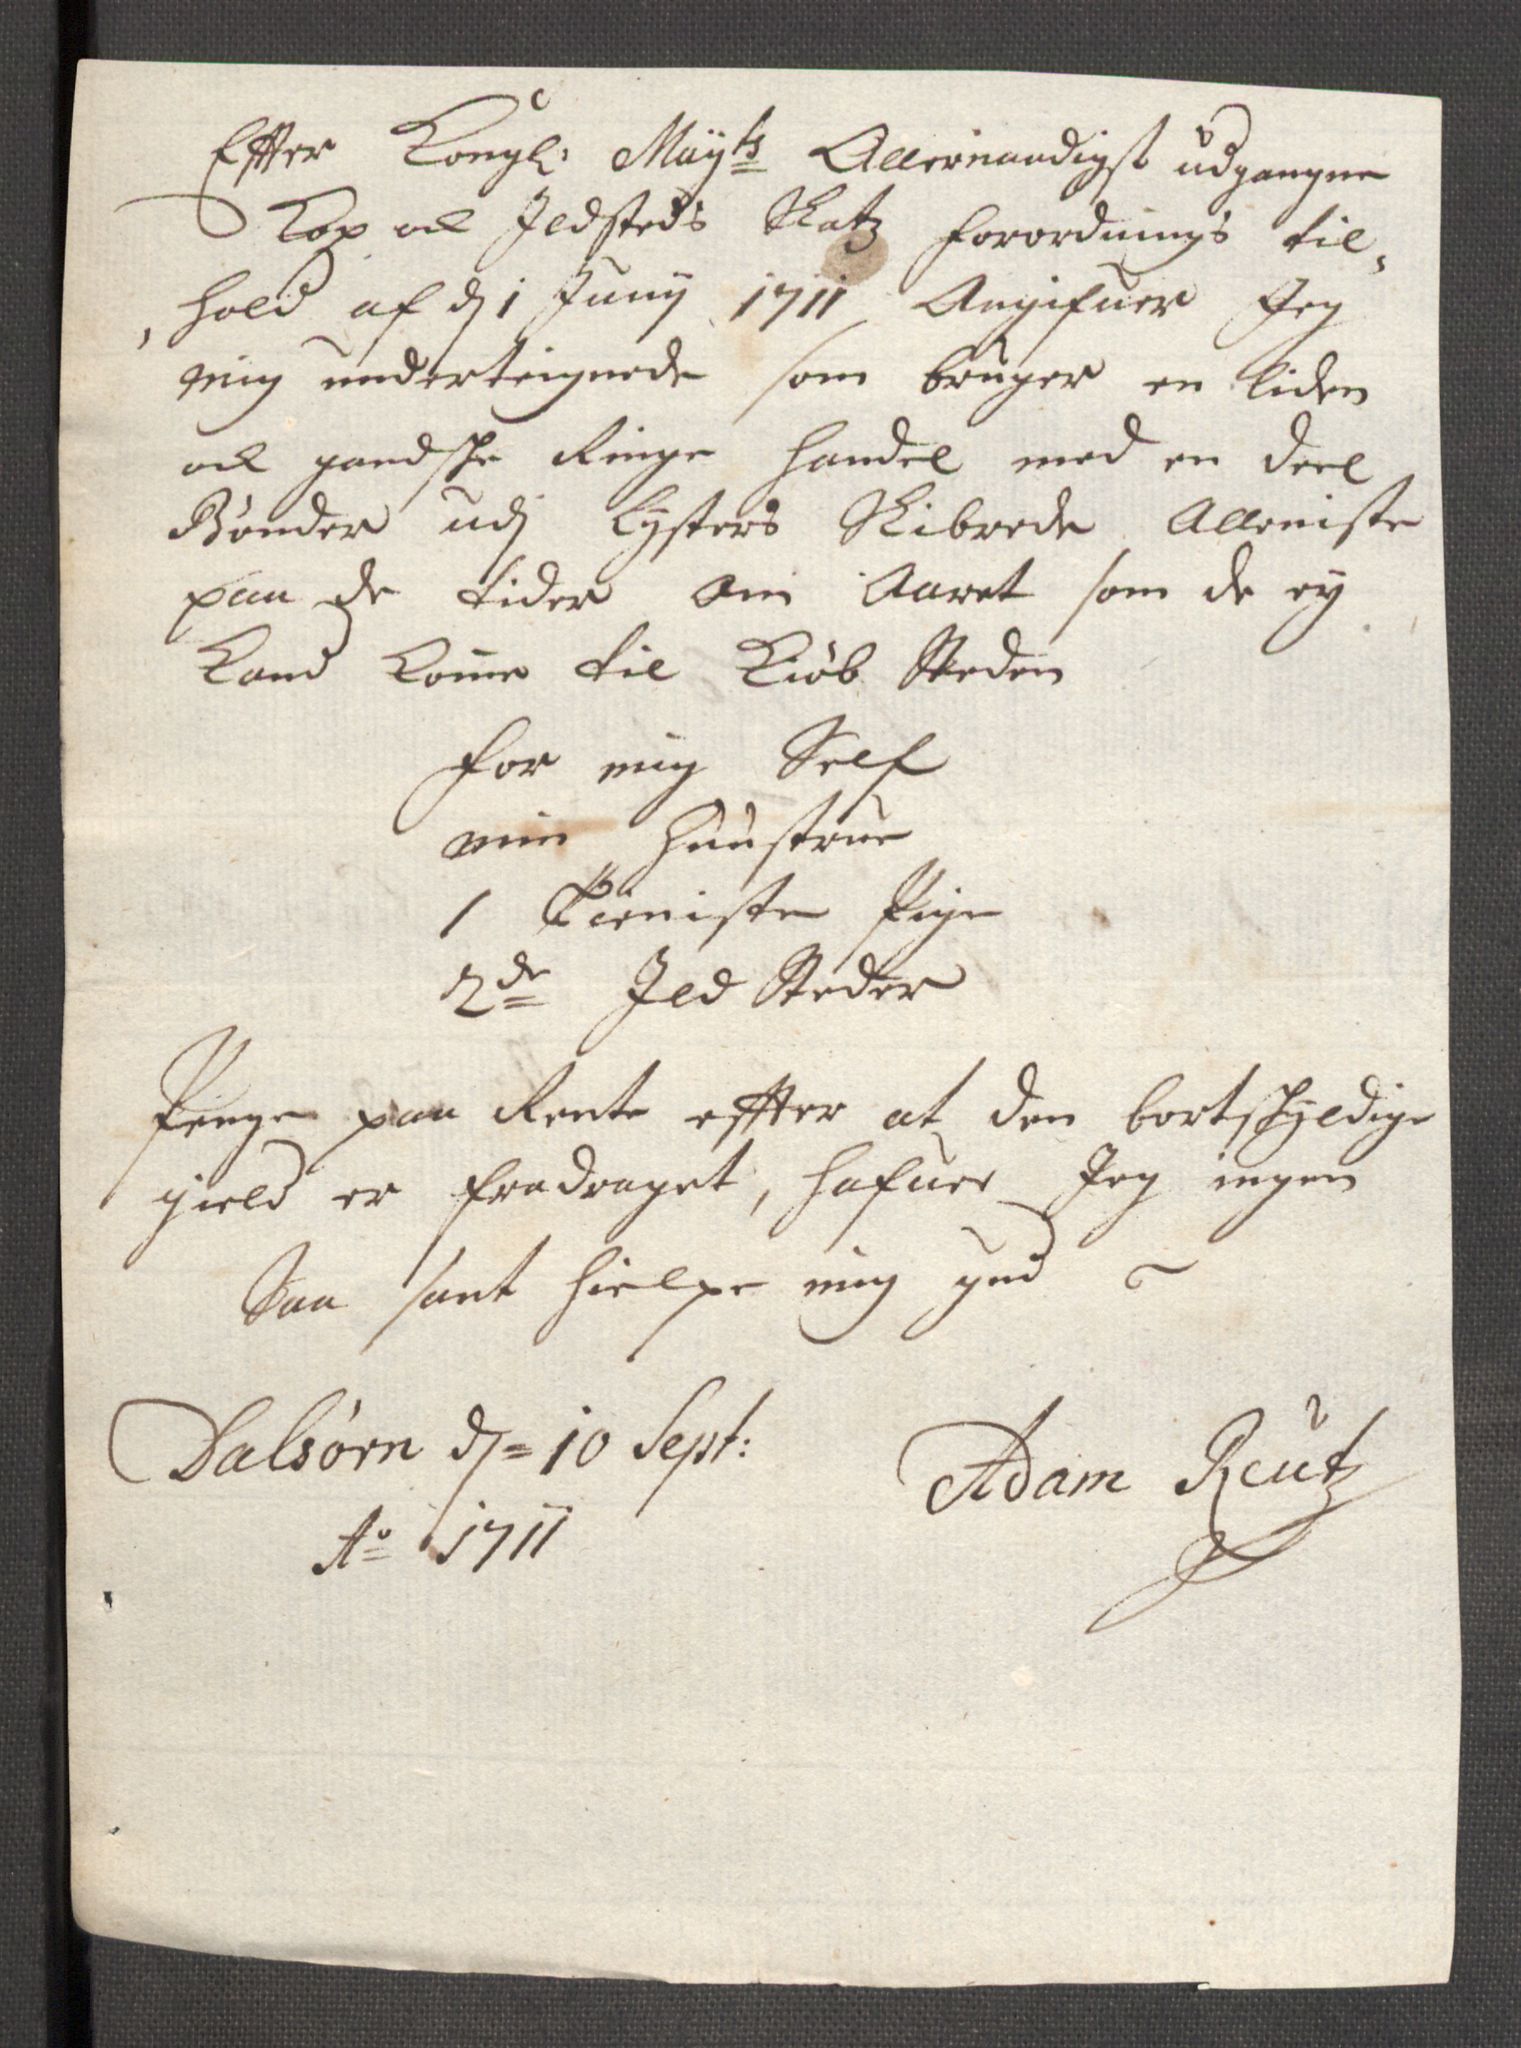 Effter Kongl: Mayts Allernaadigst udgangne
Kop och Ildsteds Skatz forordnings til,
, hold af dj 1 Junij 1711 Angifuer Jeg
mig underteignede som bruger en liden
och gandske Ringe handel med en deel
Bønder udj Lysters Skibrede Alleniste
paa de tider om Aaret som de ey
Kand Kome til Kiøb Steden
for mig Self
min Huustrue
1 Tieniste Pige
2de Ild Steder
Penge paa Rente effter at den bortskyldige
gield er fradraget, hafuer Jeg ingen
Saa sant hielpe mig gud
Dalsørn dj= 10 Sept:
Ao 1711
Adam Reutz